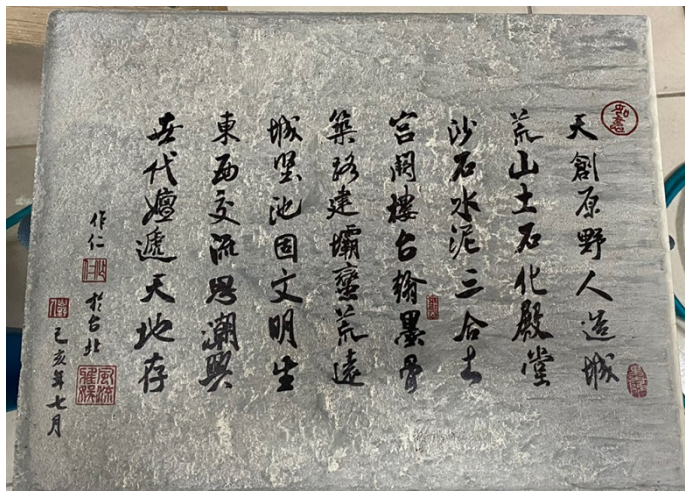 天創原野人造城
荒山土石化殿堂
沙石水泥三合土
宮闕樓台翰墨骨
築路建壩蠻荒遠
城堅池固文明生
東西交流思潮興
世代嬗遞天地存
作仁
於台北
己亥年七月